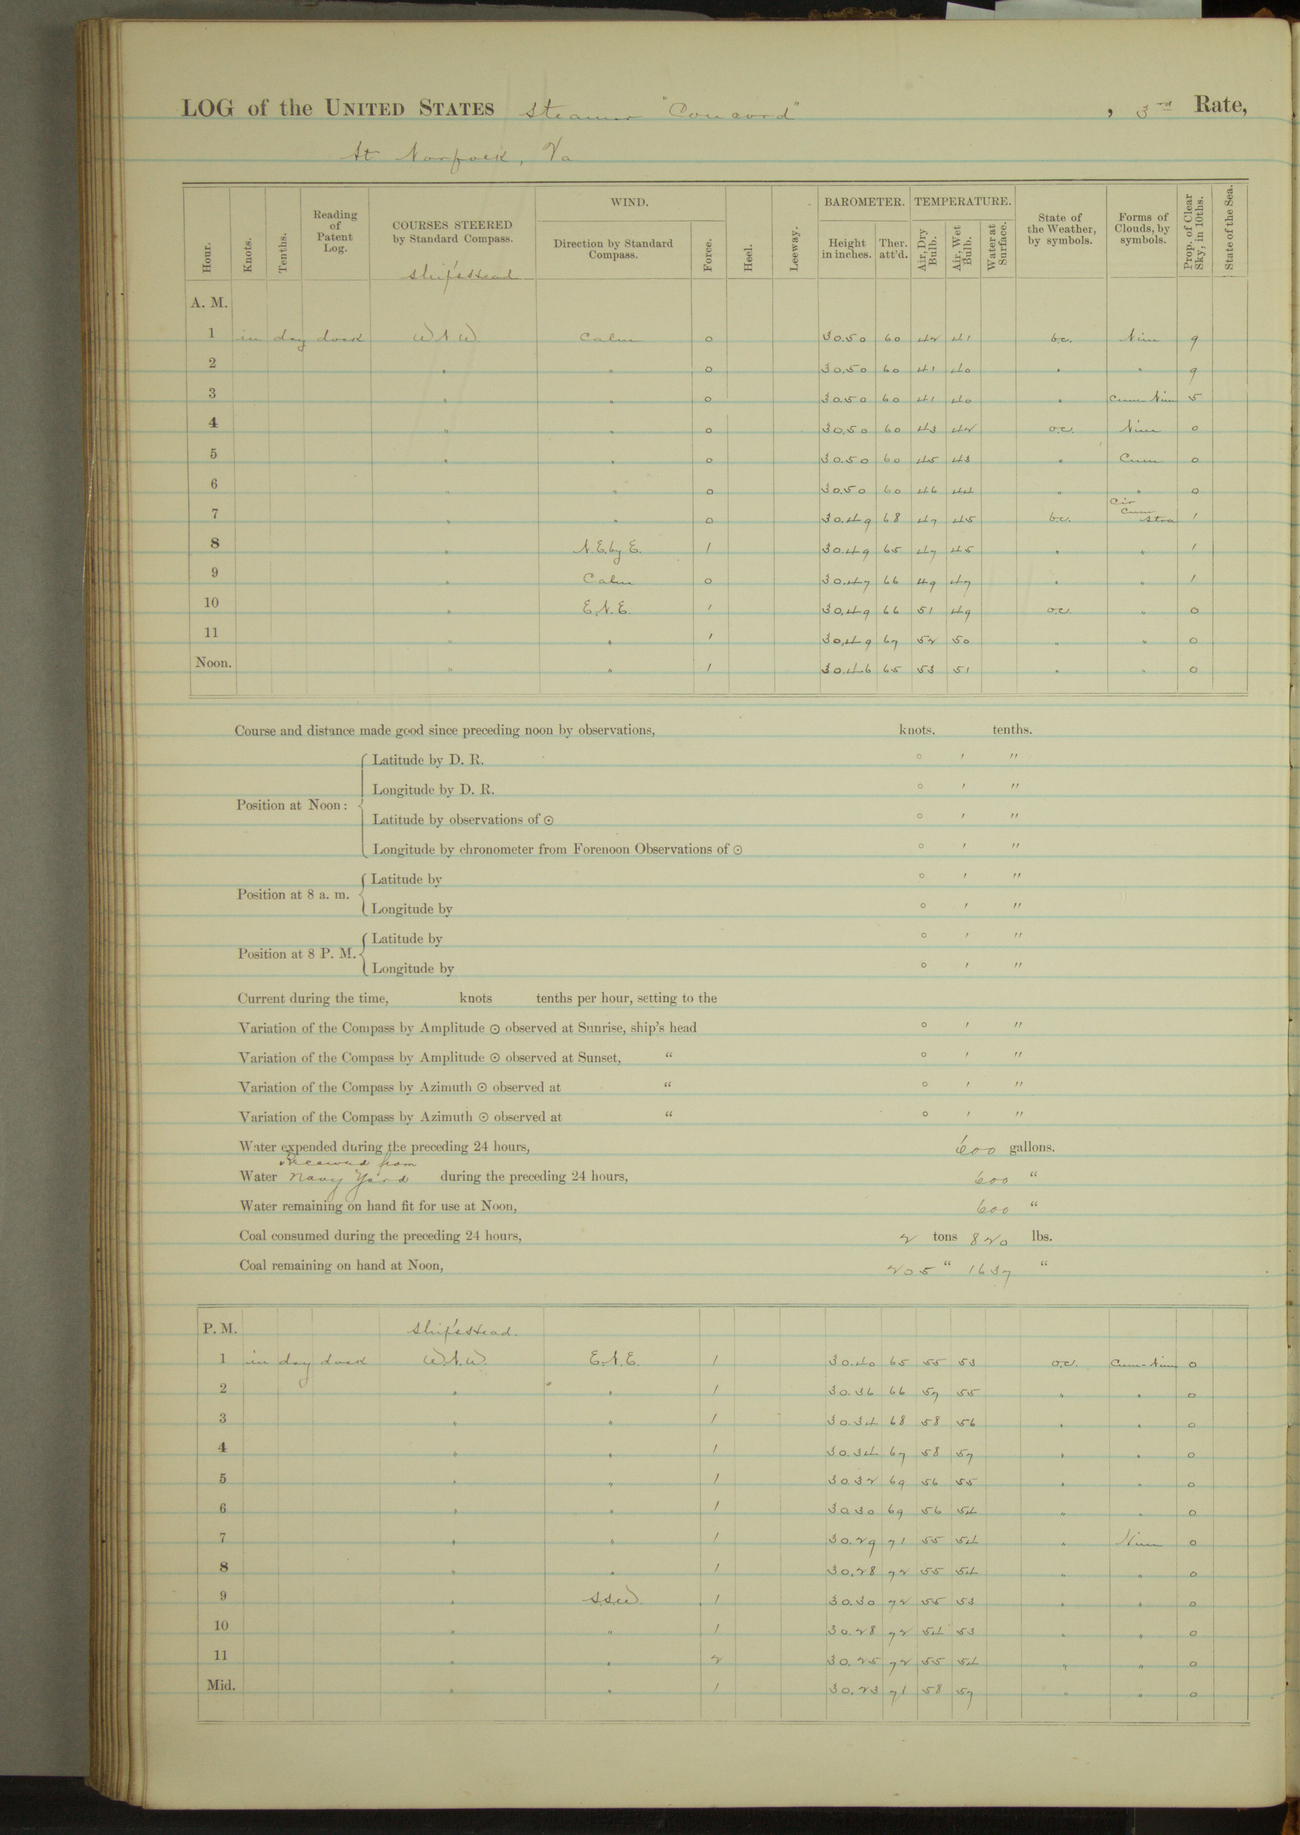 LOG of the UNITED STATES Steamer "Concord", 3rd Rate,
At Norfolk, Va
Hour. Knots. Tenths. Reading of Patent Log. COURSES STEERED by Standard Compass. WIND. Direction by Standard Compass. Force. Heel. Leeway. BAROMETER. Height in inches. Ther. att'd. TEMPERATURE. Air, Dry Bulb. Air, Wet Bulb. Water at Surface. State of the Weather, by symbols. Forms of Clouds, by symbols. Prop. of Clear Sky, in 10ths. State of the Sea.
Ship's Head
A. M.
1 in dry dock W N W Calm 0 30.50 60 42 41 b.c. Nim 9
2 " " 0 30.50 60 41 40 " " 9
3 " " 0 30.50 60 41 40 " Cum-Nim 5
4 " " 0 30.50 60 43 42 o.c. Nim 0
5 " " 0 30.50 60 45 43 " Cum 0
6 " " 0 30.50 60 46 44 " " 0
7 " " 0 30.49 68 47 45 b.c. Cir Cum Stra 1
8 " N.E. by E. 1 30.49 65 47 45 " " 1
9 " Calm 0 30.47 66 49 47 " " 1
10 " E.N.E. 1 30.49 66 51 49 o.c. " 0
11 " " 1 30.49 67 52 50 " " 0
Noon. " " 1 30.46 65 53 51 " " 0
Course and distance made good since preceding noon by observations, knots. tenths.
Position at Noon: Latitude by D. R. ° ′ ″
Longitude by D. R. ° ′ ″
Latitude by observations of ☉ ° ′ ″
Longitude by chronometer from Forenoon Observations of ☉ ° ′ ″
Position at 8 a. m. Latitude by ° ′ ″
Longitude by ° ′ ″
Position at 8 P. M. Latitude by ° ′ ″
Longitude by ° ′ ″
Current during the time, knots tenths per hour, setting to the
Variation of the Compass by Amplitude ☉ observed at Sunrise, ship's head ° ′ ″
Variation of the Compass by Amplitude ☉ observed at Sunset, “ ° ′ ″
Variation of the Compass by Azimuth ☉ observed at “ ° ′ ″
Variation of the Compass by Azimuth ☉ observed at “ ° ′ ″
Water expended during the preceding 24 hours, 600 gallons.
Water Received from Navy Yard during the preceding 24 hours, 600 “
Water remaining on hand fit for use at Noon, 600 “
Coal consumed during the preceding 24 hours, 2 tons 820 lbs.
Coal remaining on hand at Noon, 205 “ 1637 “
P. M. Ship's Head.
1 in dry dock W.N.W. E.N.E. 1 30.40 65 55 53 o.c. Cum-Nim 0
2 " " 1 30.36 66 57 55 " " 0
3 " " 1 30.34 68 58 56 " " 0
4 " " 1 30.34 67 58 57 " " 0
5 " " 1 30.32 69 56 55 " " 0
6 " " 1 30.30 69 56 54 " " 0
7 " " 1 30.29 71 55 54 " Nim 0
8 " " 1 30.28 72 55 54 " " 0
9 " S.S.W. 1 30.30 72 55 53 " " 0
10 " " 1 30.28 72 54 53 " " 0
11 " " 2 30.25 72 55 54 " " 0
Mid. " " 1 30.23 71 58 57 " " 0